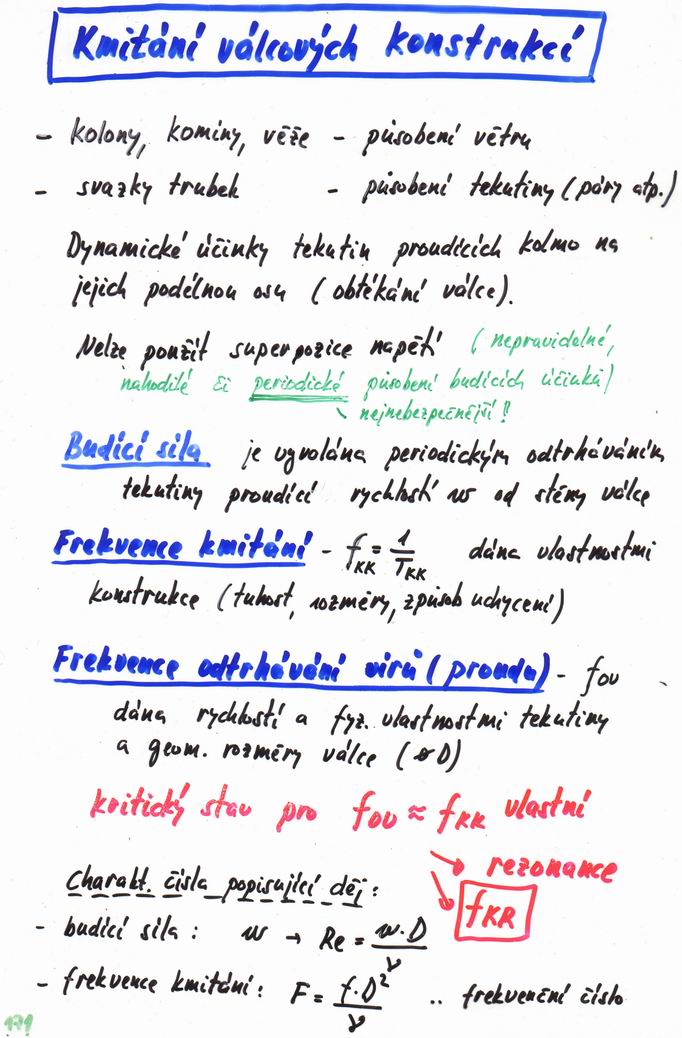 Kmitání válcových konstrukcí
- kolony, komíny, věže - působení větru
- svazky trubek - působení tekutiny (páry atp.)
Dynamické účinky tekutin proudících kolmo na
jejich podélnou osu (obtékání válce).
Nelze použít superpozice napětí (nepravidelné,
nahodilé či periodické působení budících účinků)
nejnebezpečnější!
Budící síla je vyvolána periodickým odtrháváním
tekutiny proudící rychlostí w od stěny válce
Frekvence kmitání - f_KK = 1/T_KK dána vlastnostmi
konstrukce (tuhost, rozměry, způsob uchycení)
Frekvence odtrhávání vírů (proudu) - f_OV
dána rychlostí a fyz. vlastnostmi tekutiny
a geom. rozměry válce (⌀D)
kritický stav pro f_OV ≈ f_KK vlastní
rezonance
Charakt. čísla popisující děj:
f_KR
- budící síla: w → Re = w·D/ν
- frekvence kmitání: F = f·D²/ν .. frekvenční číslo
171